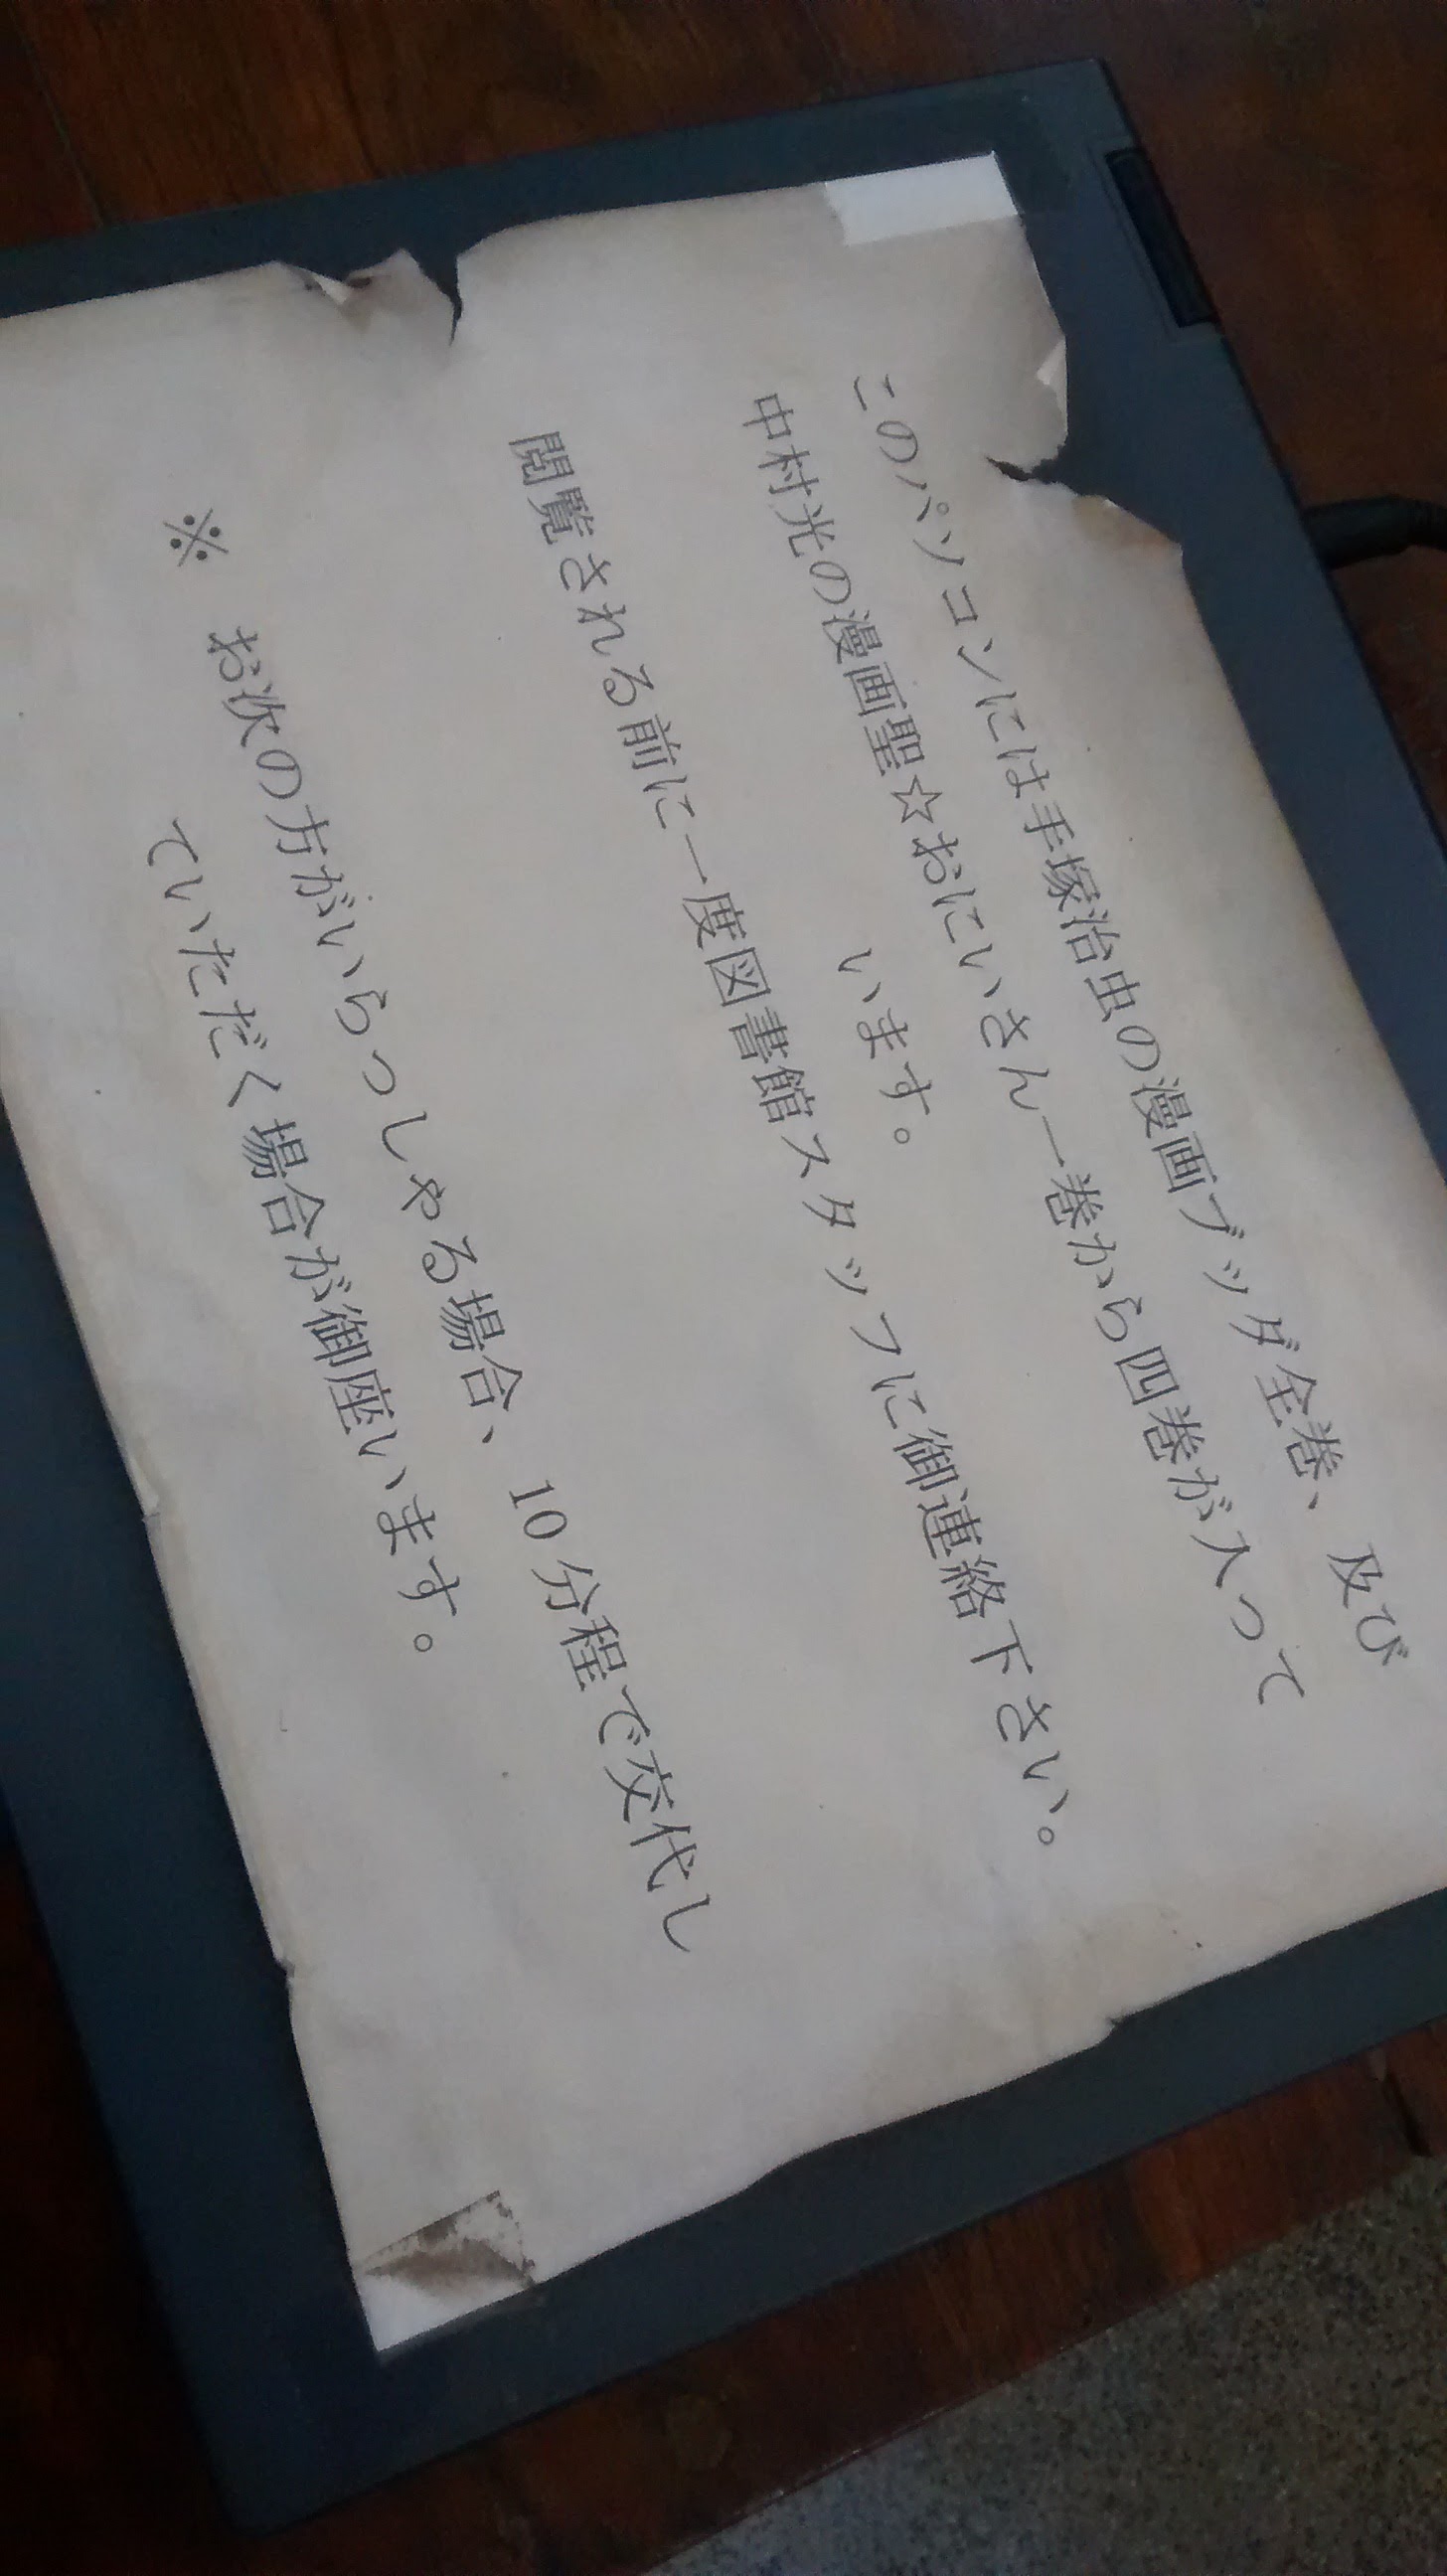 このパソコンには手塚治虫の漫画ブッダ全巻、及び
中村光の漫画聖☆おにいさん一巻から四巻が入って
います。
閲覧される前に一度図書館スタッフに御連絡下さい。
※ お次の方がいらっしゃる場合、10分程で交代し
ていただく場合が御座います。